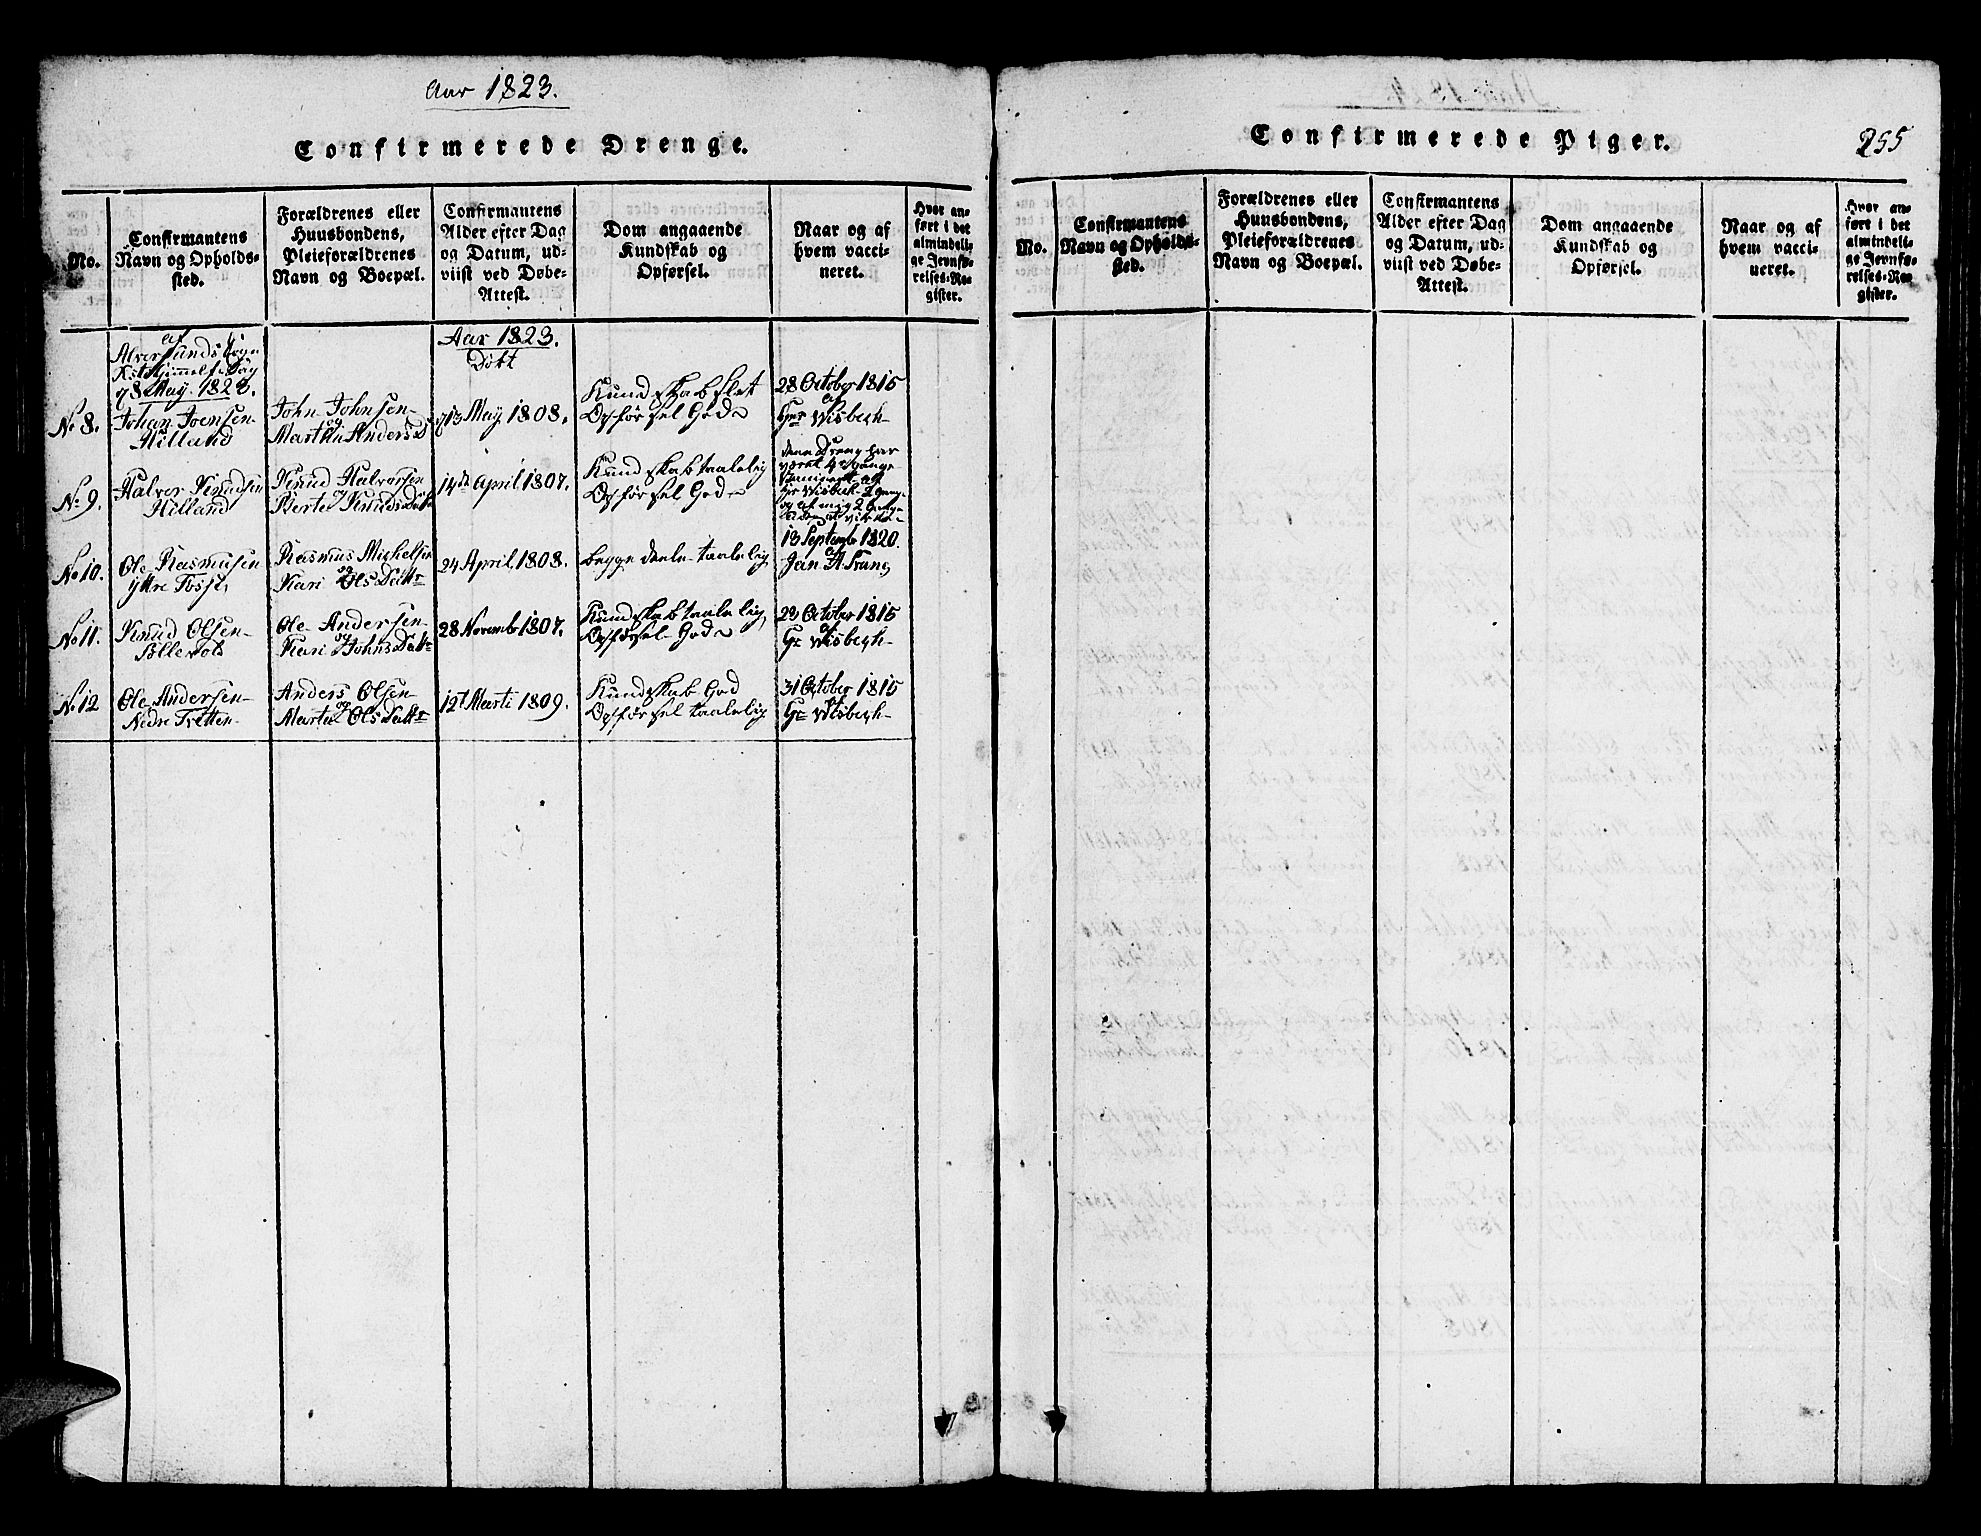 Aar 1823.
Confirmerede Drenge.
No.
Confirmantens
Navn og Opholds-
sted.
Forældrenes eller
Huusbondens,
Pleieforældrenes
Navn og Boepæl.
Confirmantens
Alder efter Dag
og Datum, ud-
viist ved Døbe-
Attest.
Dom angaaende
Kundskab og
Opførsel.
Naar og af
hvem vacci-
neret.
Hvor an-
ført i det
almindeli-
ge Jevnfø-
relses-Re-
gister.
af
Alversunds Sogn
d 8 May. 1823.
Aar 1823.
Døbt
No 8.
Johan Joensen
Hilland
John Johnsen
og
Martha Anders D
d 13 May 1808.
Kundskab slet
Opførsel Gode
28 October 1815
af
Hr Wisbech
No 9.
Halver Knudsen
Hilland
Knud Halvorsen
og
Berte Knuds Datr
14de April 1807.
Kundskab taalelig
Opførsel Gode
denne Dreng har
været 4re Gange
Vaccineret af
Hr Wisbech 2 Gang
og af mig 2 Gange
No 10.
Ole Rasmusen
Ytre Fosse
Rasmus Michelsen
og
Kari Ols Datr
24 April 1808.
begge deele taalelig
13 Septembr 1820.
af
Jan A. Trane
No 11.
Knud Olsen
Ole Andersen
og
Kari Johns Datr
28 Novembr 1807.
Kundskab taalelig,
Opførsel Gode
29 October 1815
af
Hr Wisbech
No 12
Ole Andersen
Nedre Tvetten
Anders Olsen
og
Marte Ols Datr
12t Marti 1809.
Kundskab God
Opførsel taalelig
31 October 1815
af
Hr Wisbech
Confirmerede Piger.
255
No.
Confirmantens
Navn og Opholds-
sted.
Forældrenes eller
Huusbondens,
Pleieforældrenes
Navn og Boepæl.
Confirmantens
Alder efter Dag
og Datum, ud-
viist ved Døbe-
Attest.
Dom angaaende
Kundskab og
Opførsel.
Naar og af
hvem vacci-
neret.
Hvor an-
ført i det
almindeli-
ge Jevnfø-
relses-Re-
gister.